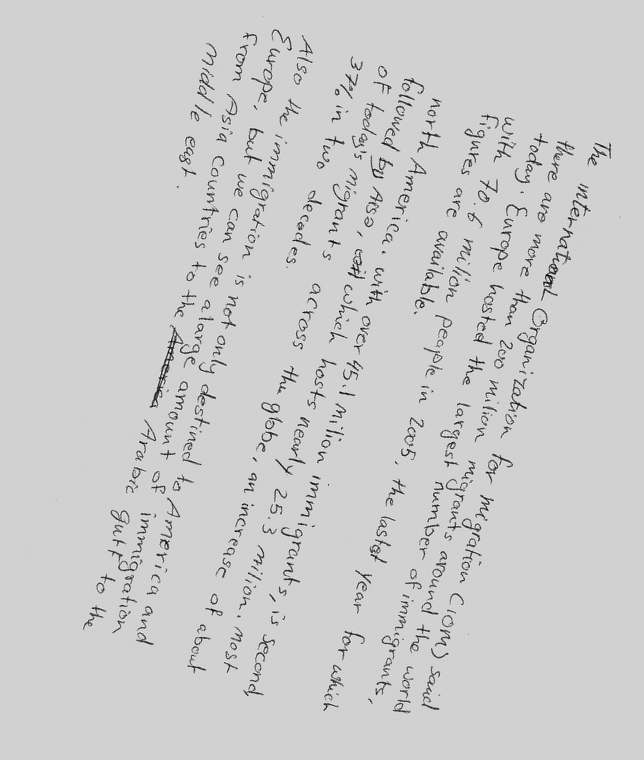 The international Organization for migration (IOM) said
there are more than 200 milion migrants around the world
today. Europe hosted the largest number of immigrants,
with 70.6 million people in 2005, the lastest year for which
figures are available.
north America, with over 45.1 milion immigrants, is second,
followed by Aisa, which hosts nearly 25.3 milion. most
of today's migrants across the globe, an increase of about
37% in two decades.
Also the immigration is not only destined to America and
Europe, but we can see a large amount of immigration
from Asia countries to the America Arabic gulf to the
middle east.